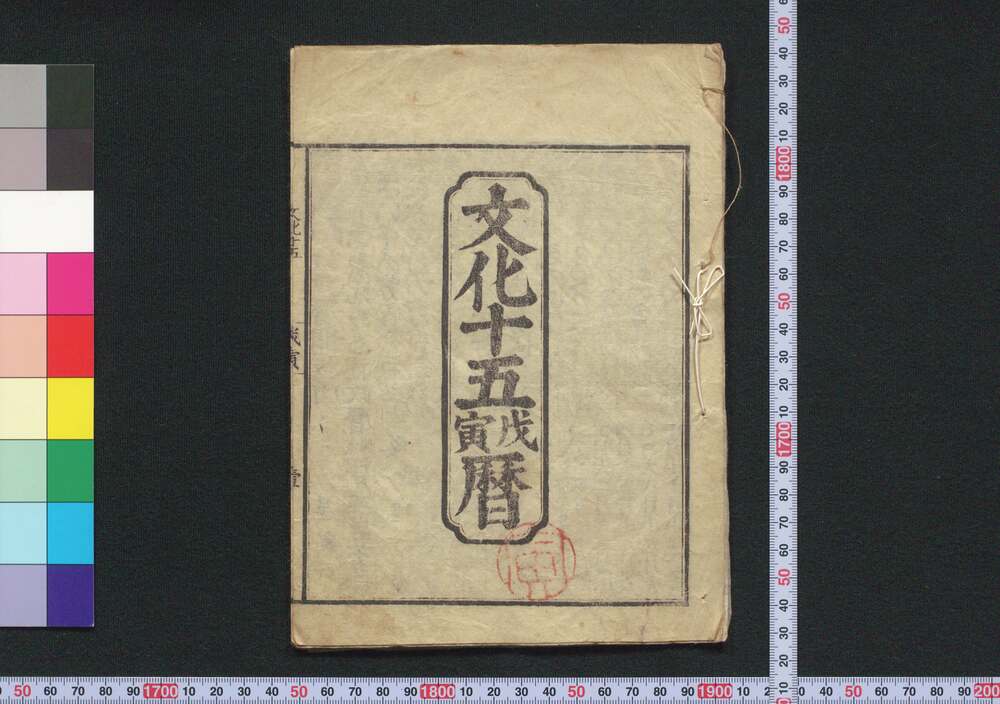 文化十五戊寅暦
戊寅
50 60 70 80 90 1700 10 20 30 40 50 60 70 80 90 1800 10 20 30 40 50 60 70 80 90 1900 10 2
30 40 50 60 70 80 90 200
50
40
30
20
10
1800
90
80
70
60
50
40
30
20
10
1700
90
80
70
60
50
40
30
20
10